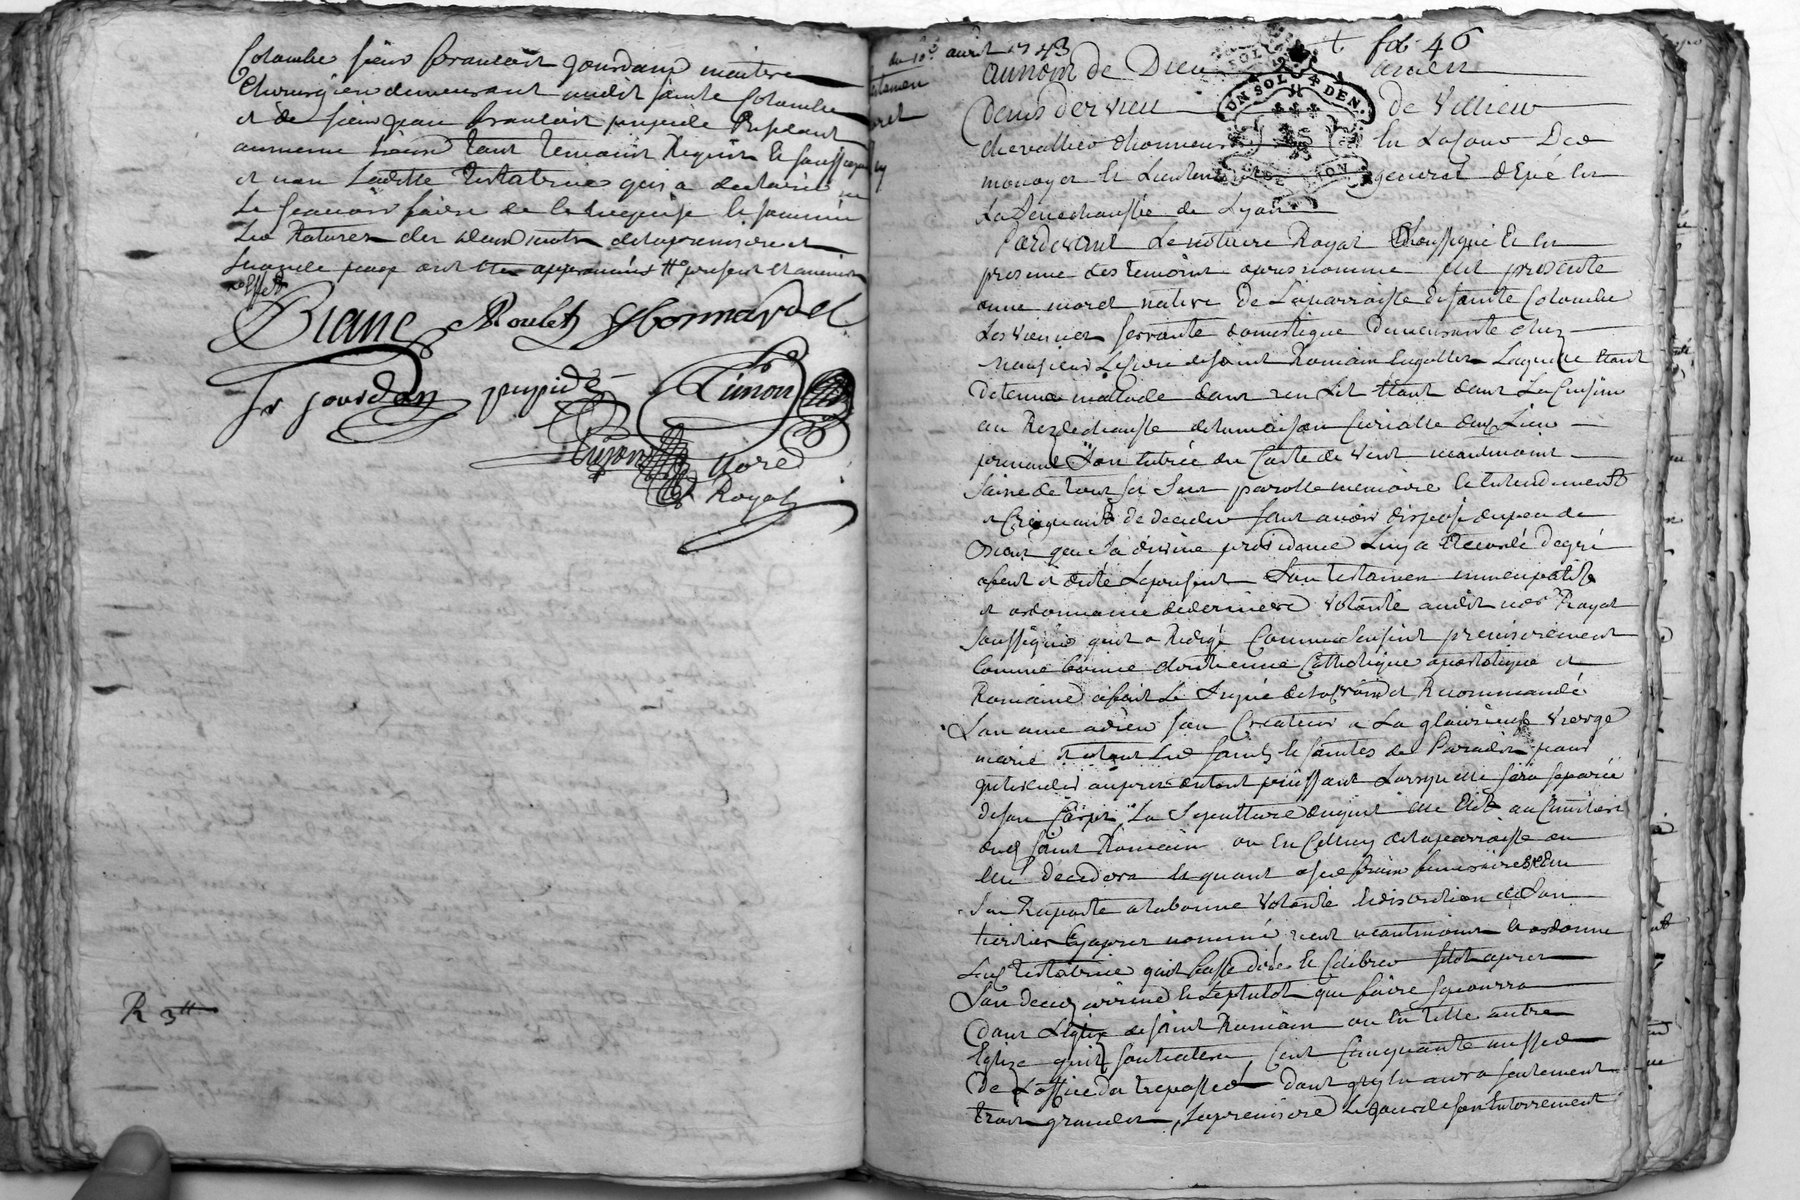 Colombe sieur francois Jourdan maitre
Chirurgien demeurant audit sainte Colombe
et de sieur jean francois pupide
au meme lieu tant temoins Requis et soussignes
et non Laditte testatrice qui a declaré ne
le scavoir faire de ce enquise et sommée
des mots
seconde page ont été approuvés
Blanc Roulet Bonnardel
fr jourdan pupide Simon
Simon nore
Royal
R 3tt
du 10e avril 1743
testament
moret
+ fol 46
au nom de Dieu amen
Denis Dervieu de Villieu
chevallier dhonneur en La Cour des
monoyes et Lieutenant general dépé en
La Senechaussée de Lyon
Pardevant Le notaire Royal soussigné et en
presence des temoins apres nommes fut presente
anne moret native de La parroisse de sainte Colombe
Les vienne servante domestique demeurante chez
Monsieur de saint Romain Engallet Laquelle etant
detenue malade dans un Lit etant dans La Cuisine
au Rez de chaussée de la maison Curialle dud Lieu
prenant son entrée du Coté de vent neanmoins
saine de tout ses sens parolle memoire et entendement
et Craignant de deceder sans avoir disposé du peu de
biens que La divine providence Luy a accordé de gré
a fait et dicté Le present son testament nuncupatif
et ordonnance de derniere volonté audit nore Royal
soussigné qui l'a Redigé Comme s'ensuit premierement
Comme bonne chretienne Catholique apostolique et
Romaine a fait Le signe de la Croix et Recommandé
son ame a dieu son Createur a La glorieuse vierge
marie et a tous Les saints et saintes de Paradis pour
interceder aupres du tout puissant Lorsqu'elle sera separée
de son Corps, La Sepulture duquel elle Elit au Cimetiere
dud saint Romain ou en Celluy de la parroisse ou
elle decedera et quant a ses frais funeraires elle
s'en Raporte a la bonne volonté et discretion de son
heritier Cy apres nommé veut neantmoins et ordonne
Lad testatrice qu'il fasse dire et Celebrer sitot apres
son deces arrivé et le plutot que faire se pourra
dans L'eglise de saint Romain ou en telle autre
Eglise qu'il souhaitera, Cent Cinquante messes
de L'office des trepassés dont il y en aura seulement
trois grandes, La premiere le jour de son Enterrement